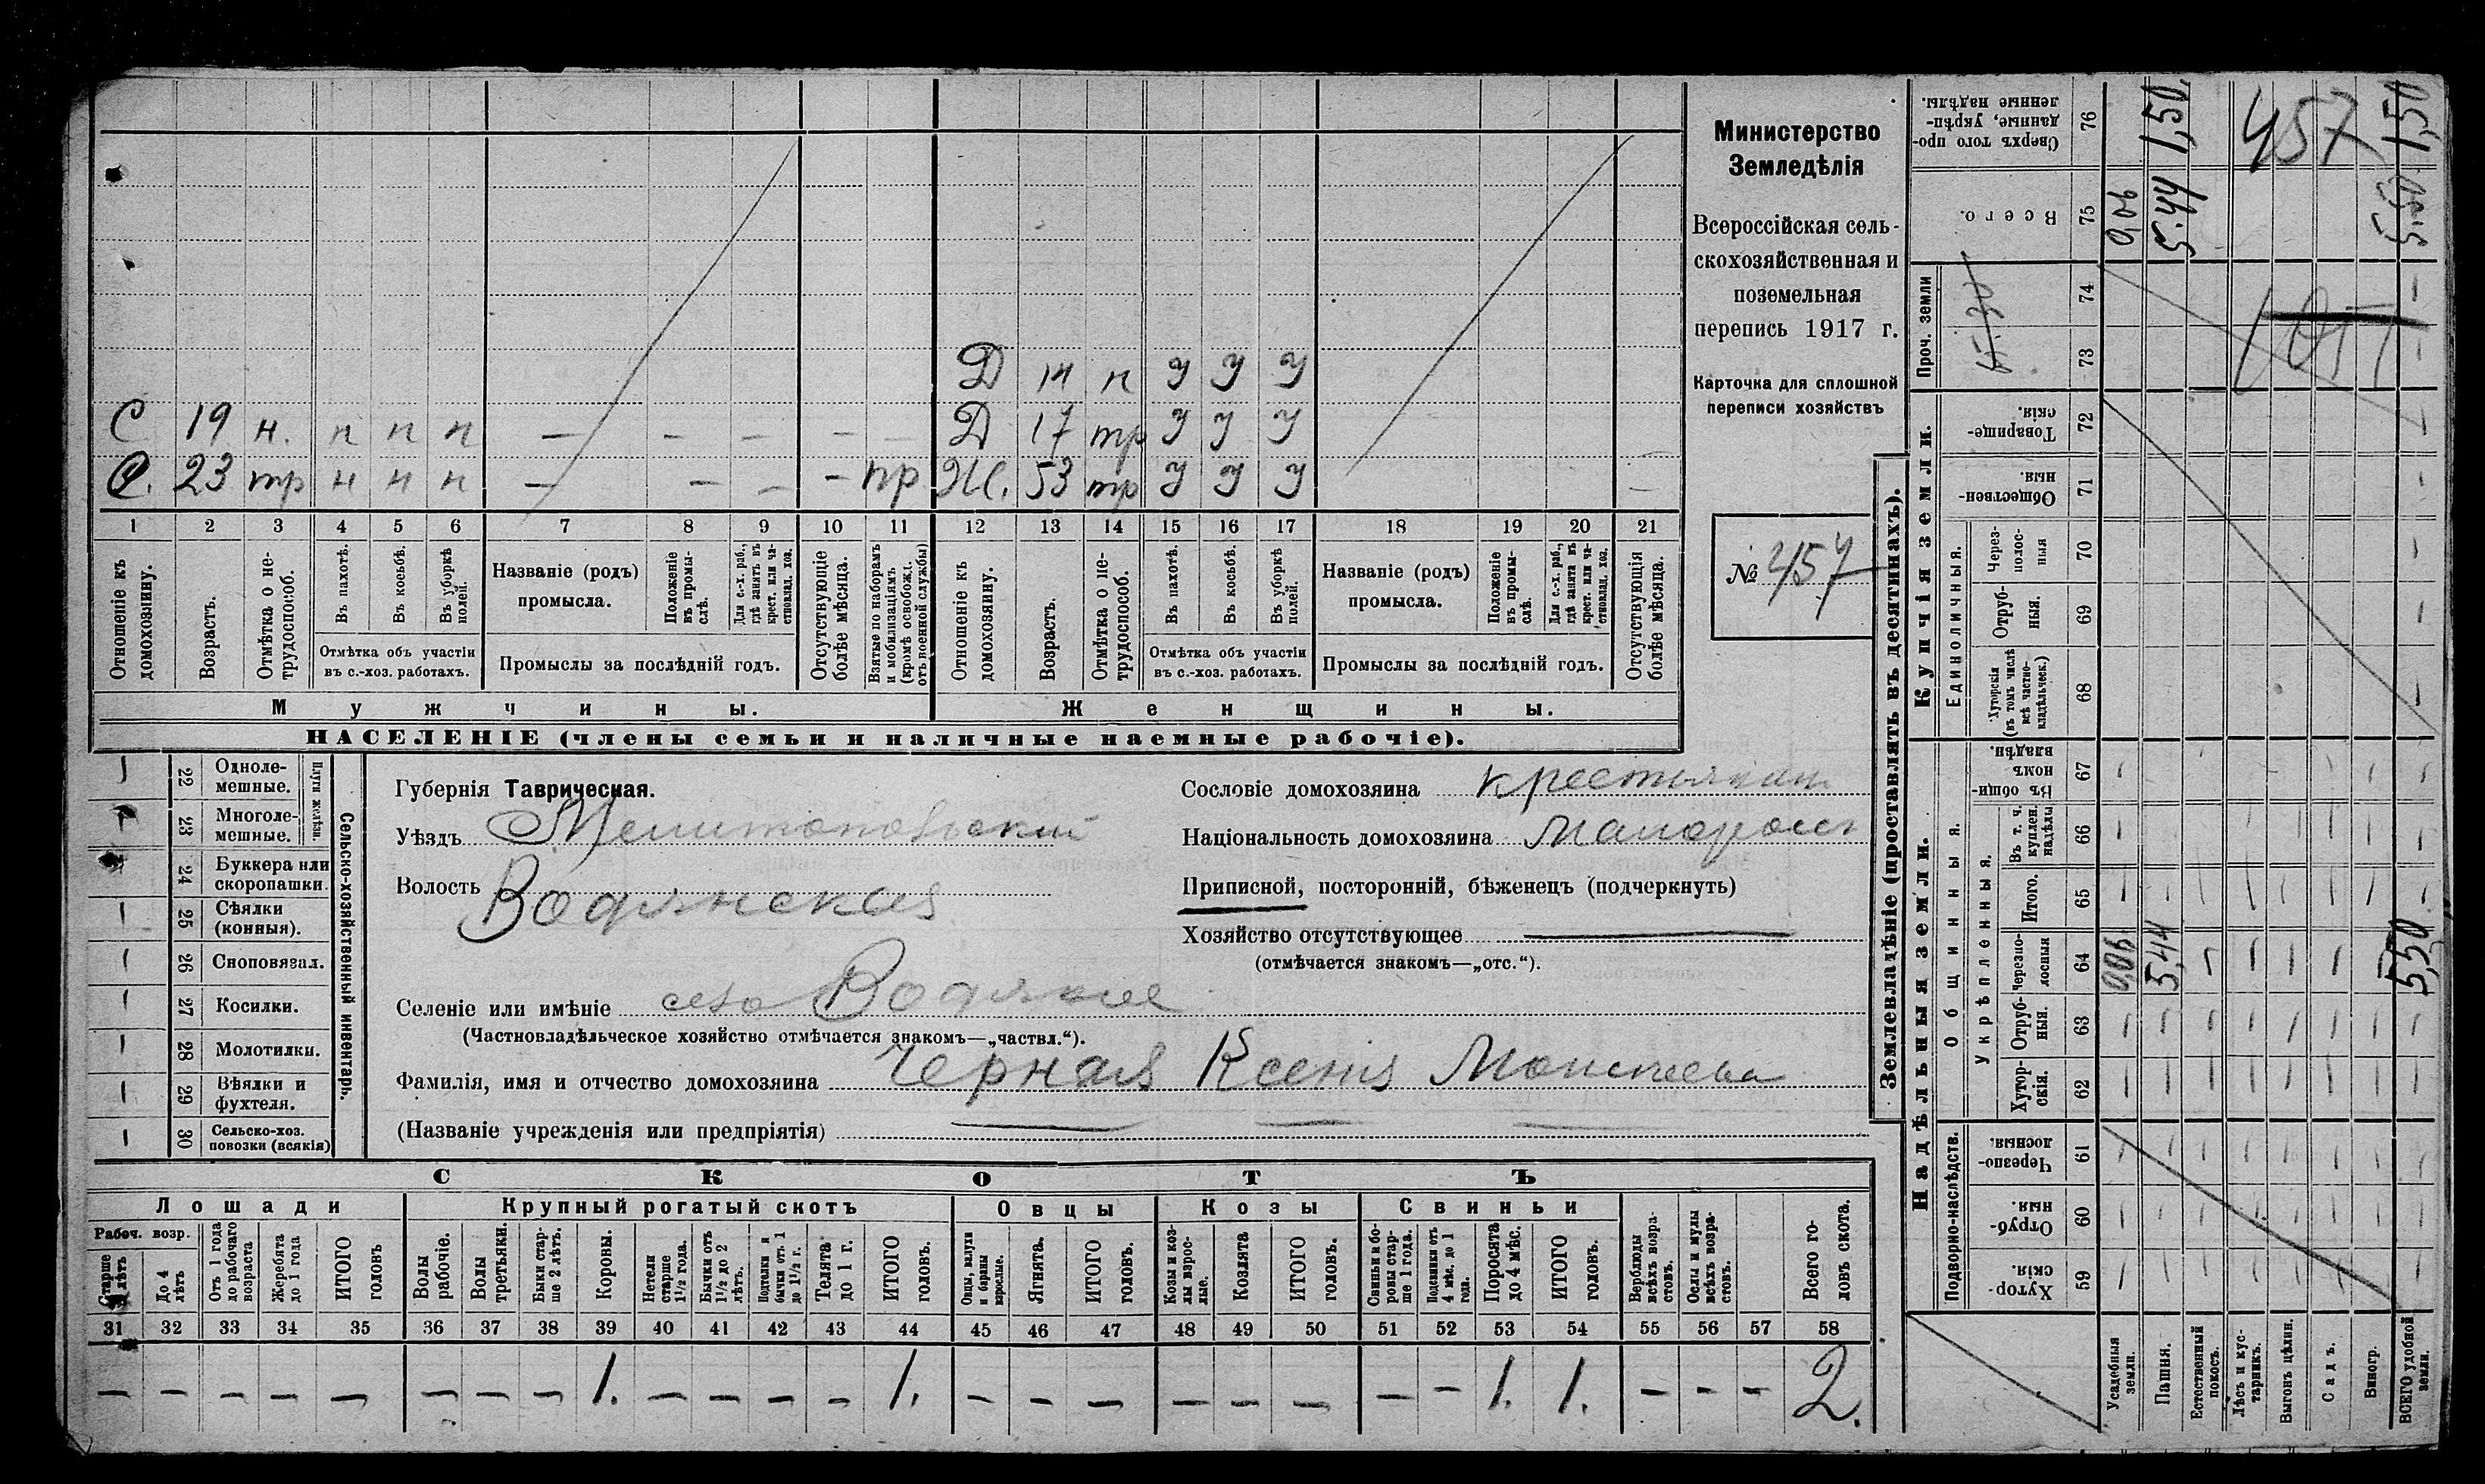 Д 14 п У У У
С 19 н. п п п — — — — — Д 17 тр У У У
С. 23 тр н н н — — — - пр Ж. 53 тр У У У —
1 2 3 4 5 6 7 8 9 10 11 12 13 14 15 16 17 18 19 20 21
Отношеніе къ домохозяину.
Возрастъ.
Отмѣтка о не-трудоспособ.
Въ пахотѣ.
Въ косьбѣ.
Въ уборкѣ полей.
Отмѣтка объ участіи
въ с.-хоз. работахъ.
Названіе (родъ)
промысла.
Положеніе въ промы-слѣ.
Для с.-х. раб., гдѣ занятъ въ крест. или ча-стновлад. хоз.
Промыслы за послѣдній годъ.
Отсутствующіе болѣе мѣсяца.
Взятые по наборамъ и мобилизаціямъ (кромѣ освобожд. отъ военной службы)
Отношеніе къ домохозяину.
Возрастъ.
Отмѣтка о не-трудоспособ.
Въ пахотѣ.
Въ косьбѣ.
Въ уборкѣ полей.
Отмѣтка объ участіи
въ с.-хоз. работахъ.
Названіе (родъ)
промысла.
Положеніе въ промы-слѣ.
Для с.-х. раб., гдѣ занята въ крест. или ча-стновлад. хоз.
Промыслы за послѣдній годъ.
Отсутствующія болѣе мѣсяца.
Мужчины. Женщины.
НАСЕЛЕНІЕ (члены семьи и наличные наемные рабочіе).
Министерство
Земледѣлія
Всероссійская сель-
скохозяйственная и
поземельная
перепись 1917 г.
Карточка для сплошной
переписи хозяйствъ
№ 457
Сельско-хозяйственный инвентарь.
Плуги желѣзн.
22 Одноле-
мешные.
23 Многоле-
мешные.
24 Буккера или
скоропашки.
25 Сѣялки
(конныя).
26 Сноповязал.
27 Косилки.
28 Молотилки.
29 Вѣялки и
фухтеля.
30 Сельско-хоз.
повозки (всякія)
Губернія Таврическая.
Уѣздъ Мелитопольскій
Волость Водянская
Селеніе или имѣніе село Водяное
(Частновладѣльческое хозяйство отмѣчается знакомъ—„частвл.“).
Фамилія, имя и отчество домохозяина Черная Ксенія Моисеева
(Названіе учрежденія или предпріятія)
Сословіе домохозяина крестьянин
Національность домохозяина Малоросс
Приписной, посторонній, бѣженецъ (подчеркнуть)
Хозяйство отсутствующее
(отмѣчается знакомъ—„отс.“).
СКОТЪ
Лошади Крупный рогатый скотъ Овцы Козы Свиньи
Рабоч. возр.
Старше 4 лѣтъ
До 4 лѣтъ
Отъ 1 года до рабочаго возраста
Жеребята до 1 года
ИТОГО головъ
Волы рабочіе.
Волы третьяки.
Быки стар-ше 2 лѣтъ.
Коровы.
Нетели старше 1½ года.
Бычки отъ 1½ до 2 лѣтъ.
Подтелки и бычки отъ 1 до 1½ г.
Телята до 1 г.
ИТОГО головъ.
Овцы, валухи и бараны взрослые.
Ягнята.
ИТОГО головъ.
Козы и коз-лы взрос-лые.
Козлята
ИТОГО головъ.
Свиньи и бо-ровы стар-ше 1 года.
Подсвинки отъ 4 мѣс. до 1 года.
Поросята до 4 мѣс.
ИТОГО головъ.
Верблюды всѣхъ возра-стовъ.
Ослы и мулы всѣхъ возра-стовъ.
Всего го-ловъ скота.
31 32 33 34 35 36 37 38 39 40 41 42 43 44 45 46 47 48 49 50 51 52 53 54 55 56 57 58
— — — — — — — — 1. — — — — 1. — — — — — — — — 1. 1. — — — 2.
Землевладѣніе (проставлять въ десятинахъ).
Надѣльныя земли. Купчія земли. Проч. земли
Подворно-наслѣдств. Общинныя. Укрѣпленныя. Единоличныя.
59 Хутор-скія.
60 Отруб-ныя.
61 Черезпо-лосныя.
62 Хутор-скія.
63 Отруб-ныя.
64 Черезпо-лосныя 0,06 5,44 5,50
65 Итого.
66 Въ т. ч. куплен. надѣлы
67 Въ общин-номъ владѣн.
68 Хуторскія (въ томъ числѣ всѣ частно-владѣльческ.)
69 Отруб-ныя.
70 Через-полос-ныя
71 Обществен-ныя
72 Товарище-скія.
73
74
75 Всего. 0,06 5.44 5.50
76 Сверхъ того про-данные, укрѣп-ленные надѣлы. 1,50 457 1,50
Усадебныя земли.
Пашня.
Естественный покосъ.
Лѣсъ и кус-тарникъ.
Выгонъ цѣлин.
Садъ.
Виногр.
ВСЕГО удобной земли.